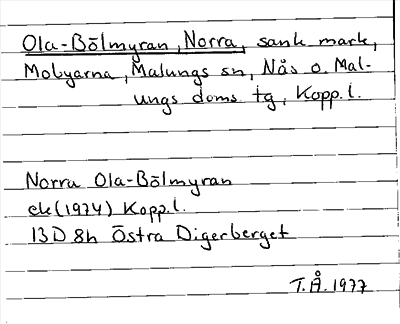 Ola-Bölmyran, Norra, sank mark,
Mobyarna, Malungs sn, Nås o. Mal-
ungs doms. tg, Kopp. l.
Norra Ola-Bölmyran
ek (1974) Kopp. l.
13D 8h Östra Digerberget
T.Å. 1977